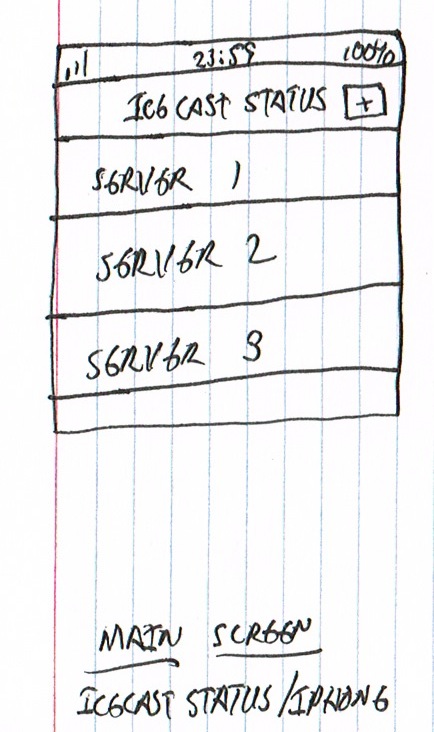 23:59 100%
ICECAST STATUS +
SERVER 1
SERVER 2
SERVER 3
MAIN SCREEN
ICECAST STATUS/IPHONE